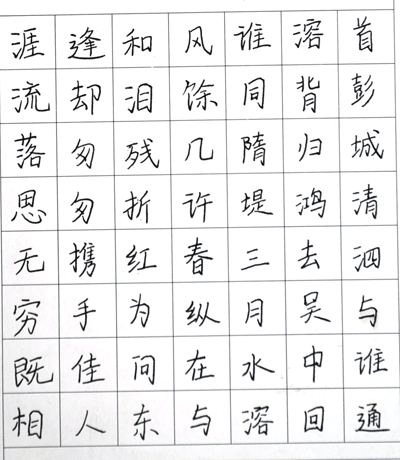 涯流落思无穷既相
逢却匆匆携手佳人
和泪残折红为问东
风馀几许春纵在与
谁同隋堤三月水溶
溶背归鸿去吴中回
首彭城清泗与谁通